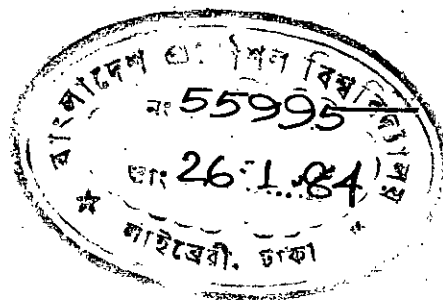 বাংলাদেশ প্রকৌশল বিশ্ববিদ্যালয়
নং 55995
তাং 26.1.84
★ লাইব্রেরী, ঢাকা ★